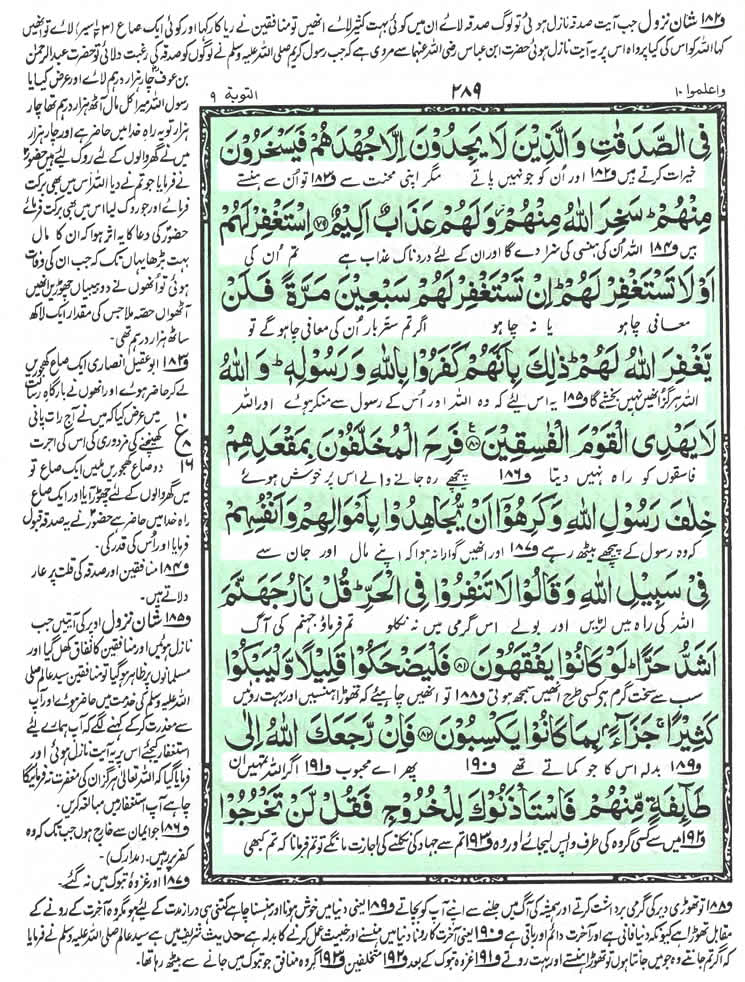 و۱۸۲ شان نزول جب آیت صدقہ نازل ہوئی تو لوگ صدقہ لائے ان میں کوئی بہت کثیر لائے انھیں تو منافقین نے ریاکار کہا اور کوئی ایک صاع (۳½سیر) لائے تو انھیں
کہا اللہ کو اس کی کیا پرواہ اس پر یہ آیت نازل ہوئی حضرت ابن عباس رضی اللہ عنہما سے مروی ہے کہ جب رسول کریم صلی اللہ علیہ وسلم نے لوگوں کو صدقہ کی رغبت دلائی تو حضرت عبدالرحمٰن
واعلموا ۱۰
۲۸۹
التوبۃ ۹
فِي الصَّدَقٰتِ وَالَّذِيْنَ لَا يَجِدُوْنَ اِلَّا جُهْدَهُمْ فَيَسْخَرُوْنَ
خیرات کرتے ہیں و۱۸۲ اور ان کو جو نہیں پاتے مگر اپنی محنت سے و۱۸۳ تو اُن سے ہنستے
مِنْهُمْ ؕ سَخِرَ اللّٰهُ مِنْهُمْ ؗ وَلَهُمْ عَذَابٌ اَلِيْمٌ ﴿۷۹﴾ اِسْتَغْفِرْ لَهُمْ
ہیں و۱۸۴ اللہ اُن کی ہنسی کی سزا دے گا اور ان کے لئے دردناک عذاب ہے تم اُن کی
اَوْ لَا تَسْتَغْفِرْ لَهُمْ ؕ اِنْ تَسْتَغْفِرْ لَهُمْ سَبْعِيْنَ مَرَّةً فَلَنْ
معافی چاہو یا نہ چاہو اگر تم ستّر بار اُن کی معافی چاہو گے تو
يَّغْفِرَ اللّٰهُ لَهُمْ ؕ ذٰلِكَ بِاَنَّهُمْ كَفَرُوْا بِاللّٰهِ وَرَسُوْلِهٖ ؕ وَاللّٰهُ
اللہ ہرگز انھیں نہیں بخشے گا و۱۸۵ یہ اس لیے کہ وہ اللہ اور اُس کے رسول سے منکر ہوئے اور اللہ
لَا يَهْدِي الْقَوْمَ الْفٰسِقِيْنَ ﴿۸۰﴾ فَرِحَ الْمُخَلَّفُوْنَ بِمَقْعَدِهِمْ
فاسقوں کو راہ نہیں دیتا و۱۸۶ پیچھے رہ جانے والے اس پر خوش ہوئے
خِلٰفَ رَسُوْلِ اللّٰهِ وَكَرِهُوْۤا اَنْ يُّجَاهِدُوْا بِاَمْوَالِهِمْ وَاَنْفُسِهِمْ
کہ وہ رسول کے پیچھے بیٹھ رہے و۱۸۷ اور انھیں گوارا نہ ہوا کہ اپنے مال اور جان سے
فِيْ سَبِيْلِ اللّٰهِ وَقَالُوْا لَا تَنْفِرُوْا فِي الْحَرِّ ؕ قُلْ نَارُ جَهَنَّمَ
اللہ کی راہ میں لڑیں اور بولے اس گرمی میں نہ نکلو تم فرماؤ جہنم کی آگ
اَشَدُّ حَرًّا ؕ لَوْ كَانُوْا يَفْقَهُوْنَ ﴿۸۱﴾ فَلْيَضْحَكُوْا قَلِيْلًا وَّلْيَبْكُوْا
سب سے سخت گرم ہے کسی طرح انھیں سمجھ ہوتی و۱۸۸ تو انھیں چاہیئے کہ تھوڑا ہنسیں اور بہت روئیں
كَثِيْرًا ۚ جَزَآءًۢ بِمَا كَانُوْا يَكْسِبُوْنَ ﴿۸۲﴾ فَاِنْ رَّجَعَكَ اللّٰهُ اِلٰى
و۱۸۹ بدلہ اس کا جو کماتے تھے و۱۹۰ پھر اے محبوب و۱۹۱ اگر اللہ تمہیں ان
طَآئِفَةٍ مِّنْهُمْ فَاسْتَاْذَنُوْكَ لِلْخُرُوْجِ فَقُلْ لَّنْ تَخْرُجُوْا
و۱۹۲ میں سے کسی گروہ کی طرف واپس لیجائے اور وہ و۱۹۳ تم سے جہاد کی نکلنے کی اجازت مانگے تو تم فرمانا کہ تم کبھی
بن عوف چار ہزار درہم لائے اور عرض کیا یا
رسول اللہ میرا کل مال آٹھ ہزار درہم تھا چار
ہزار تو یہ راہ خدا میں حاضر ہے اور چار ہزار
میں نے گھر والوں کے لئے روک لیے ہیں حضور
نے فرمایا جو تم نے دیا اللہ اس میں بھی برکت
فرمائے اور جو روک لیا اس میں بھی برکت فرمائے
حضور کی دعا کا یہ اثر ہوا کہ ان کا مال
بہت بڑھا یہاں تک کہ جب ان کی وفات
ہوئی تو انھوں نے دو بیبیاں چھوڑیں انھیں
آٹھواں حصہ ملا جس کی مقدار ایک لاکھ
ساٹھ ہزار درہم تھی۔
و۱۸۳ ابو عقیل انصاری ایک صاع کھجوریں
لے کر حاضر ہوئے اور انھوں نے بارگاہ رسالت
میں عرض کیا کہ میں نے آج رات پانی
کھینچنے کی مزدوری کی اس کی اجرت
دو صاع کھجوریں ملیں ایک صاع تو
میں گھر والوں کے لئے چھوڑ آیا اور ایک صاع
راہ خدا میں حاضر ہے حضور نے یہ صدقہ قبول
فرمایا اور اُس کی قدر کی۔
۱۰
ع
۸
۱۶
و۱۸۴ منافقین اور صدقہ کی قلت پر عار
دلاتے ہیں۔
و۱۸۵ شان نزول اوپر کی آیتیں جب
نازل ہوئیں اور منافقین کا نفاق کھل گیا اور
مسلمانوں پر ظاہر ہو گیا تو منافقین سید عالم صلی
اللہ علیہ وسلم کی خدمت میں حاضر ہوئے اور آپ
سے معذرت کر کے کہنے لگے کہ آپ ہمارے لئے
استغفار کیجئے اس پر یہ آیت نازل ہوئی اور
فرمایا گیا کہ اللہ تعالیٰ ہرگز ان کی مغفرت نہ فرمائیگا
چاہے آپ استغفار میں مبالغہ کریں۔
و۱۸۶ جو ایمان سے خارج ہوں جب تک کہ وہ
کفر پر رہیں۔ (مدارک)۔
و۱۸۷ اور غزوہ تبوک میں نہ گئے۔
و۱۸۸ تو تھوڑی دیر کی گرمی برداشت کرتے اور ہمیشہ کی آگ میں جلنے سے اپنے آپ کو بچاتے و۱۸۹ یعنی دنیا میں خوش ہونا اور ہنسنا چاہے کتنی ہی دراز مدت کے لیے ہو مگر وہ آخرت کے رونے کے
مقابل تھوڑا ہے کیونکہ دنیا فانی ہے اور آخرت دائم اور باقی ہے و۱۹۰ یعنی آخرت کا رونا دنیا میں ہنسنے اور خبیث عمل کرنے کا بدلہ ہے حدیث شریف میں ہے سید عالم صلی اللہ علیہ وسلم نے فرمایا
کہ اگر تم جانتے وہ جو میں جانتا ہوں تو تھوڑا ہنستے اور بہت روتے و۱۹۱ غزوہ تبوک کے بعد و۱۹۲ متخلفین و۱۹۳ اگر وہ منافق جو تبوک میں جانے سے بیٹھ رہا تھا۔